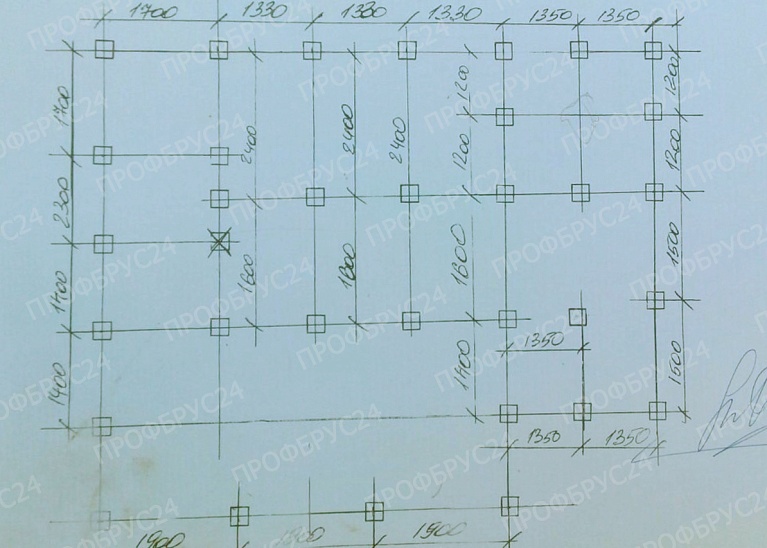 1700 1330 1330 1330 1350 1350
1700 2400 2400 2400 1200 1200 1200 1200
2300
1400 1600 1800 1800 1500
1350
1400 1400 1500
1350 1350
1900 1900 1900
ПРОФБРУС24